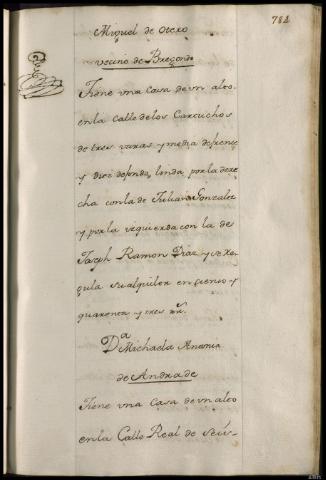 784
Miguel de Otero
vecino de Bregondo
Tiene una Casa de un alto
en la Calle de los Carcuchos
de tres varas y media de frente
y diez de fondo, linda, por la dere
cha con la de Julian Gonzalez
y por la izquierda con la de
Joseph Ramon Diaz y se re
gula su alquiler en ciento y
quarenta y tres rs.
Da Michaela Anttonia
de Andrade
Tiene una Casa de un alto
en la Calle Real de seis-